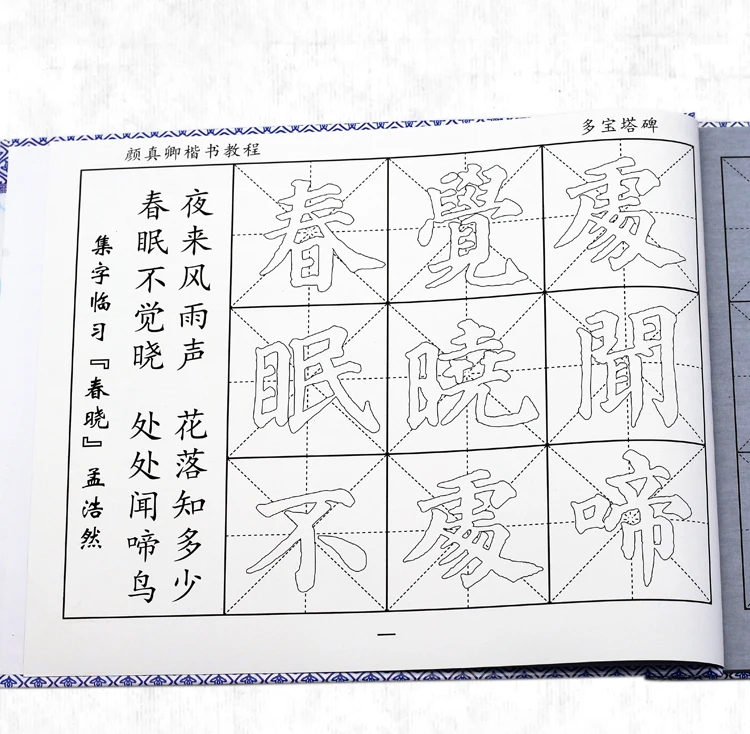 颜真卿楷书教程
多宝塔碑
集字临习『春晓』孟浩然
春眠不觉晓 处处闻啼鸟
夜来风雨声 花落知多少
春眠不
覺曉處
處聞啼
一